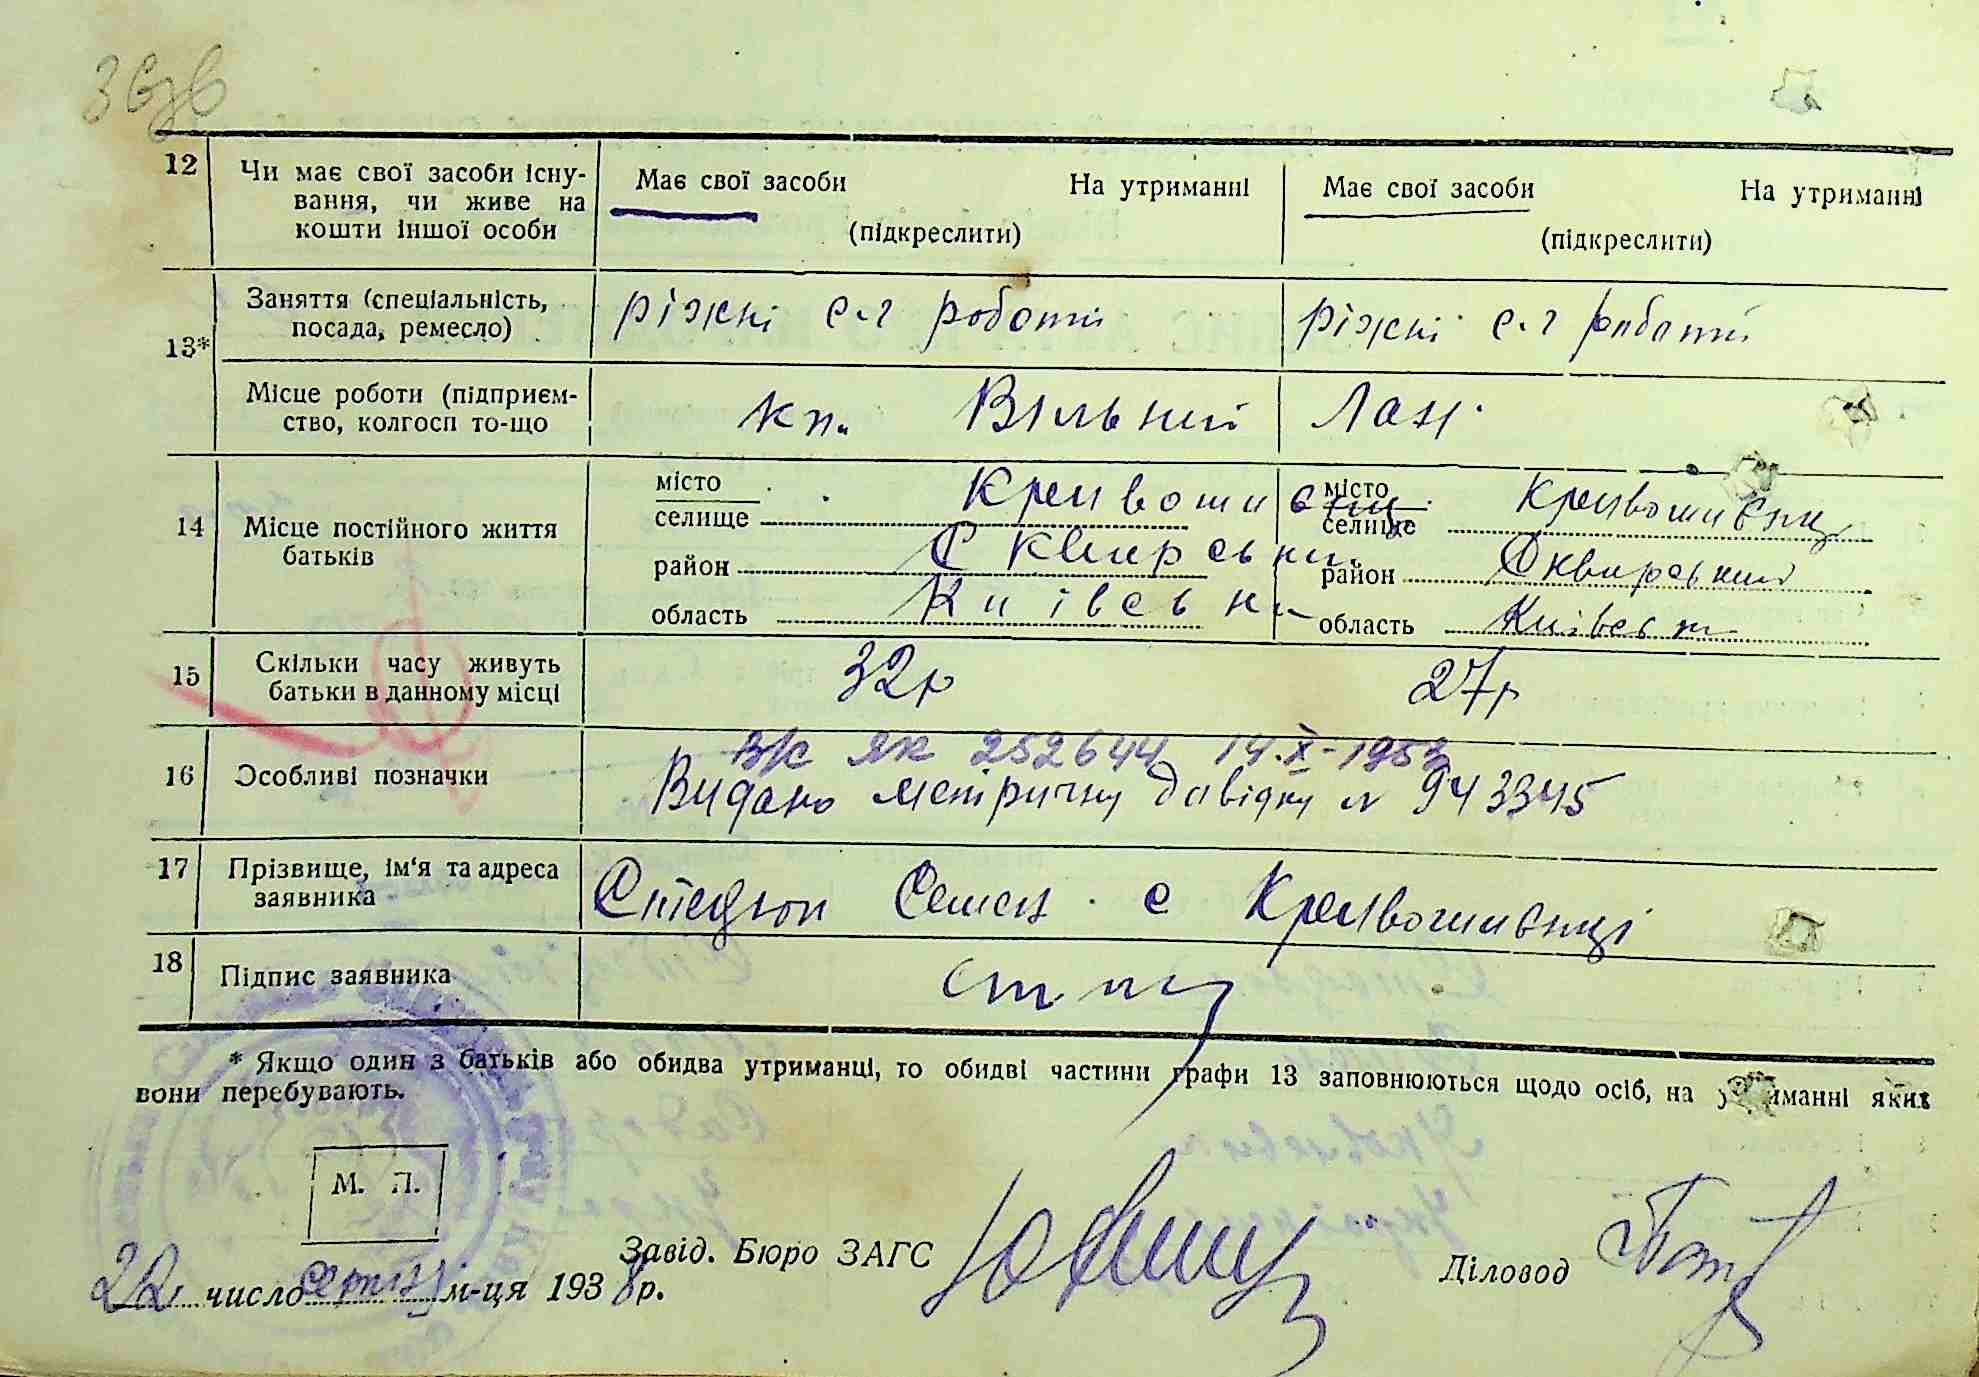 12 Чи має свої засоби існу- Має свої засоби На утриманні Має свої засоби На утриманні
вання, чи живе на
кошти іншої особи (підкреслити) (підкреслити)
13* Заняття (спеціальність, ріжні с.г роботи ріжні с.г работи
посада, ремесло)
Місце роботи (підприєм- кп. Вільний Лан
ство, колгосп то-що
14 Місце постійного життя місто Кривошиєнці місто Кривошиєнці
батьків селище селище
район Сквирський район Сквирський
область Київськ область Київськ
15 Скільки часу живуть 32р 27р
батьки в данному місці
вк ЯК 252644 14.X-1953
16 Особливі позначки Видано метричну довідку N 943345
17 Прізвище, ім'я та адреса Стадюк Семен с Кривошиєнці
заявника
18 Підпис заявника
* Якщо один з батьків або обидва утриманці, то обидві частини графи 13 заповнюються щодо осіб, на утриманні яких
вони перебувають.
М. П.
Завід. Бюро ЗАГС Діловод
22 число серпня м-ця 1938р.